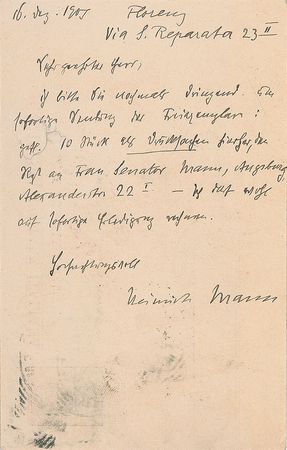 16. Dez. 1907 Florenz
Via S. Reparata 23 II
Sehr geehrter Herr,
ich bitte Sie nochmals dringend um
sofortige Sendung der Freiexemplare:
10 Stück als Drucksachen hierher, den
Rest an Frau Senator Mann, Augsburg,
Alexanderstr. 22 I — Ich darf wohl
auf sofortige Erledigung rechnen.
Hochachtungsvoll
Heinrich Mann